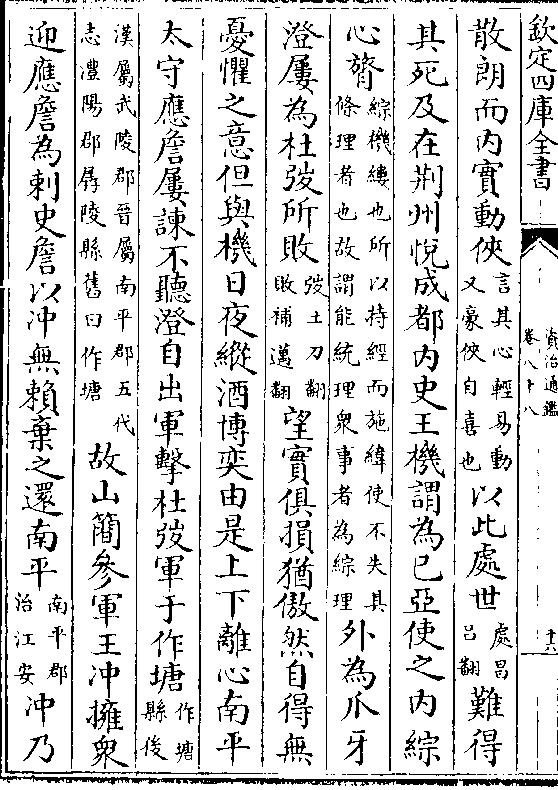 欽定四庫全書
資治通鑑
卷八十八
十六
散朗而内實動俠言其心輕易動又豪俠自喜也以此處世處昌吕翻難得
其死及在荆州悦成都内史王機謂為已亞使之内綜
心膂綜機縷也所以持經而施緯使不失其條理者也故謂能統理衆事者為綜理外為爪牙
澄屢為杜弢所敗弢土刀翻敗補邁翻望實俱損猶傲然自得無
憂懼之意但與機日夜縱酒博奕由是上下離心南平
太守應詹屢諫不聽澄自出軍擊杜弢軍于作塘作塘縣後
漢屬武陵郡晉屬南平郡五代志澧陽郡孱陵縣舊曰作塘故山簡參軍王冲擁衆
迎應詹為刺史詹以冲無賴棄之還南平南平郡治江安冲乃